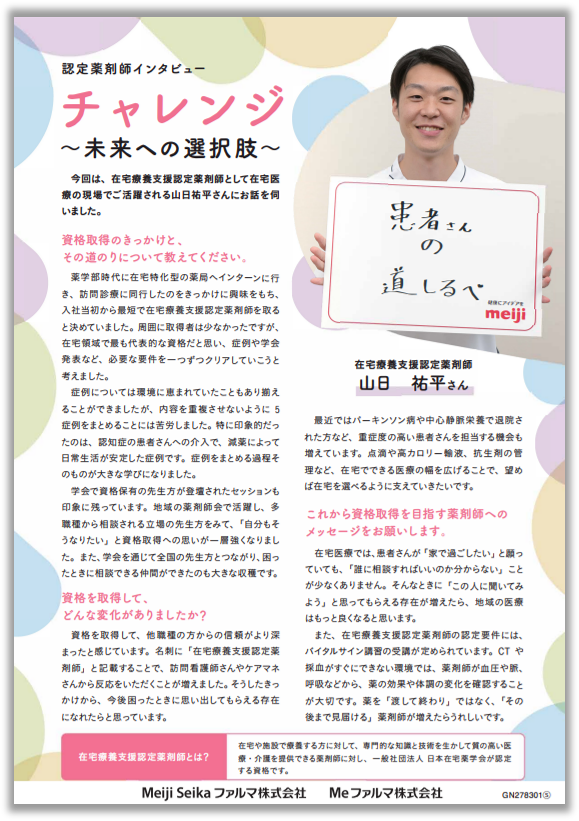 認定薬剤師インタビュー
チャレンジ
～未来への選択肢～
今回は、在宅療養支援認定薬剤師として在宅医
療の現場でご活躍される山日祐平さんにお話を伺
いました。
資格取得のきっかけと、
その道のりについて教えてください。
薬学部時代に在宅特化型の薬局へインターンに行
き、訪問診療に同行したのをきっかけに興味をもち、
入社当初から最短で在宅療養支援認定薬剤師を取る
と決めていました。周囲に取得者は少なかったですが、
在宅領域で最も代表的な資格だと思い、症例や学会
発表など、必要な要件を一つずつクリアしていこうと
考えました。
症例については環境に恵まれていたこともあり揃え
ることができましたが、内容を重複させないように 5
症例をまとめることには苦労しました。特に印象的だっ
たのは、認知症の患者さんへの介入で、減薬によって
日常生活が安定した症例です。症例をまとめる過程そ
のものが大きな学びになりました。
学会で資格保有の先生方が登壇されたセッションも
印象に残っています。地域の薬剤師会で活躍し、多
職種から相談される立場の先生方をみて、「自分もそ
うなりたい」と資格取得への思いが一層強くなりまし
た。また、学会を通じて全国の先生方とつながり、困っ
たときに相談できる仲間ができたのも大きな収穫です。
資格を取得して、
どんな変化がありましたか?
資格を取得して、他職種の方からの信頼がより深
まったと感じています。名刺に「在宅療養支援認定薬
剤師」と記載することで、訪問看護師さんやケアマネ
さんから反応をいただくことが増えました。そうしたきっ
かけから、今後困ったときに思い出してもらえる存在
になれたらと思っています。
患者さん
の
道しるべ
健康にアイデアを
meiji
在宅療養支援認定薬剤師
山日 祐平さん
最近ではパーキンソン病や中心静脈栄養で退院さ
れた方など、重症度の高い患者さんを担当する機会も
増えています。点滴や高カロリー輸液、抗生剤の管
理など、在宅でできる医療の幅を広げることで、望め
ば在宅を選べるように支えていきたいです。
これから資格取得を目指す薬剤師への
メッセージをお願いします。
在宅医療では、患者さんが「家で過ごしたい」と願っ
ていても、「誰に相談すればいいのか分からない」こと
が少なくありません。そんなときに「この人に聞いてみ
よう」と思ってもらえる存在が増えたら、地域の医療
はもっと良くなると思います。
また、在宅療養支援認定薬剤師の認定要件には、
バイタルサイン講習の受講が定められています。CT や
採血がすぐにできない環境では、薬剤師が血圧や脈、
呼吸などから、薬の効果や体調の変化を確認すること
が大切です。薬を「渡して終わり」ではなく、「その
後まで見届ける」薬剤師が増えたらうれしいです。
在宅療養支援認定薬剤師とは?
在宅や施設で療養する方に対して、専門的な知識と技術を生かして質の高い医
療・介護を提供できる薬剤師に対し、一般社団法人 日本在宅薬学会が認定
する資格です。
Meiji Seika ファルマ株式会社 Me ファルマ株式会社
GN278301⑤